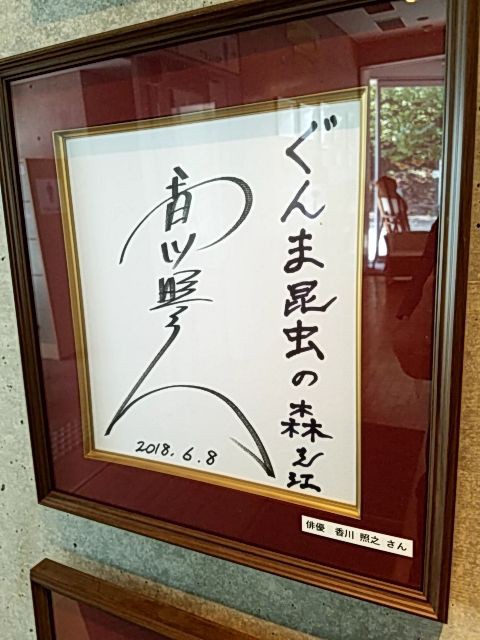 ぐんま昆虫の森さん江
香川照之
2018.6.8
俳優 香川 照之 さん